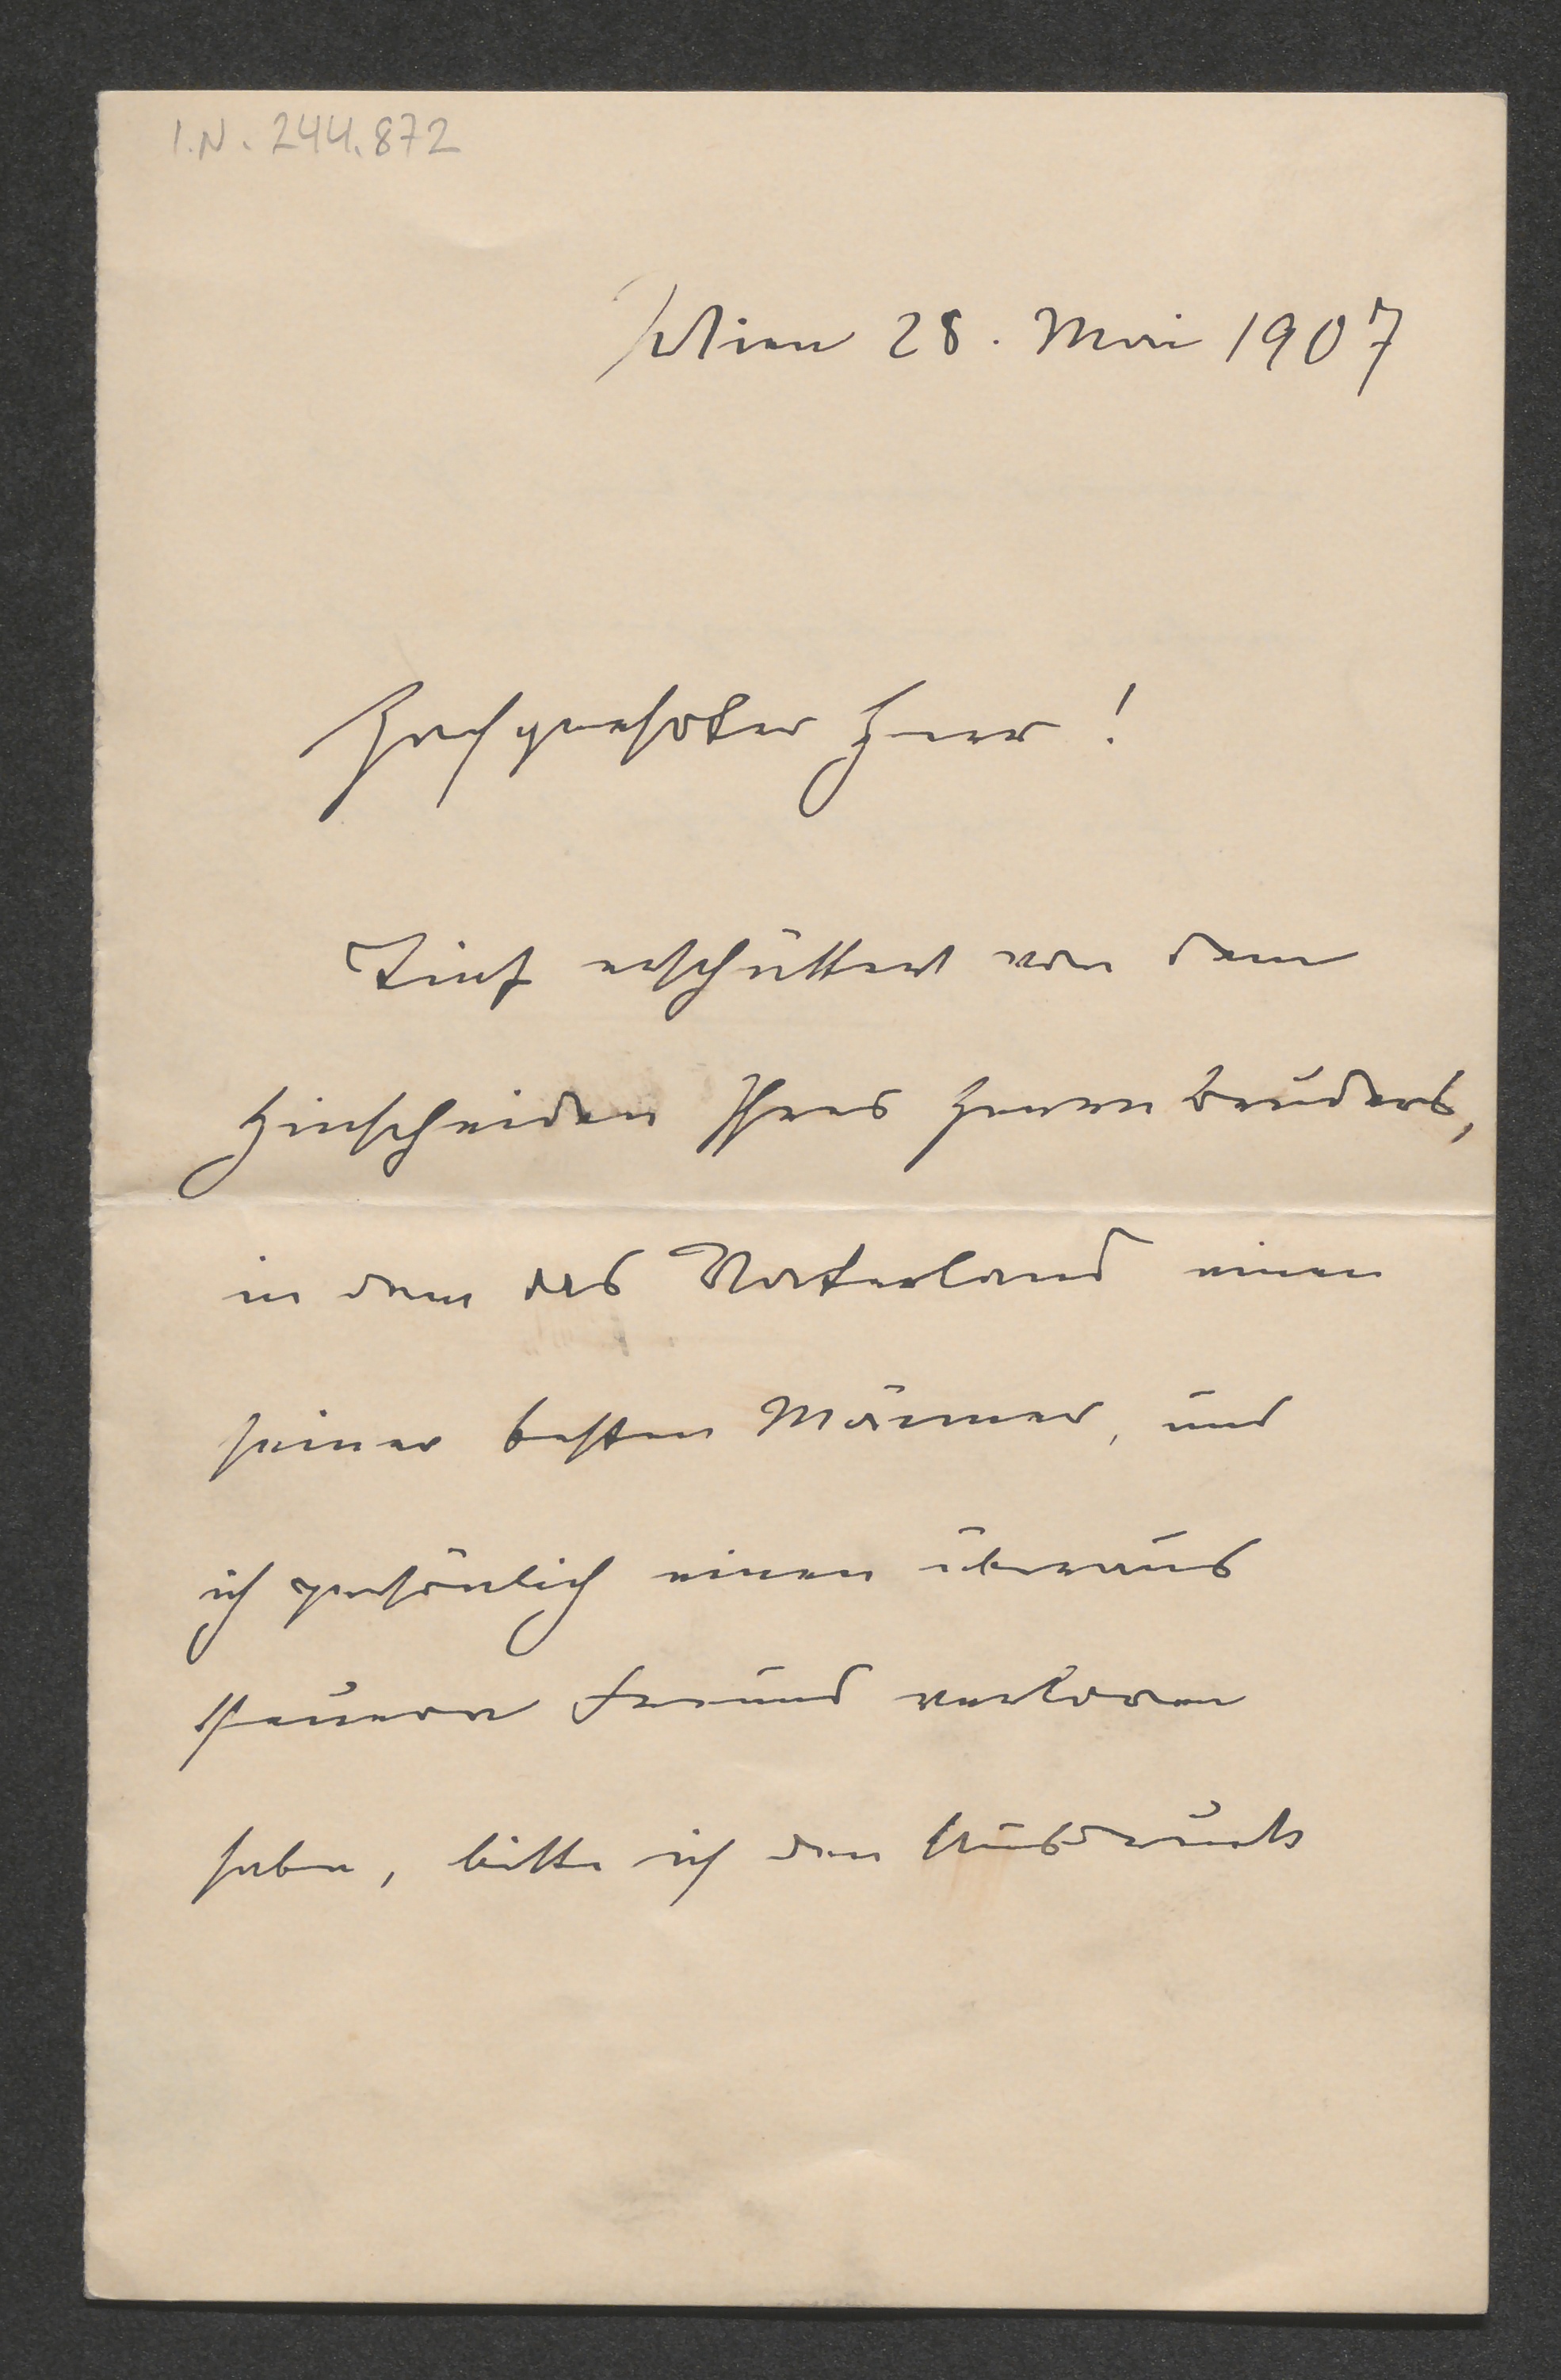 I.N. 244.872
Wien 28. Mai 1907
Hochgeehrter Herr!
Tief erschüttert von dem
Hinscheiden Ihres Herrn Bruders,
in dem das Vaterland einen
seiner besten Männer, und
ich persönlich einen überaus
theuern Freund verloren
haben, bitte ich den Ausdruck